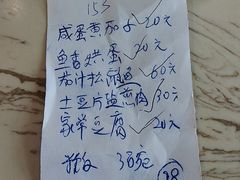 153
咸蛋煮茄子 20元
鱼香烘蛋 20元
茄汁松
60元
土豆片盐煎肉 30元
家常豆腐 20元
3碗
28